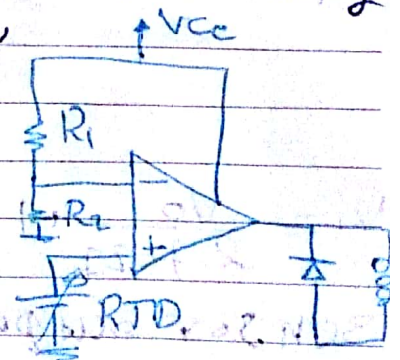 Vcc
R1
−
R2
+
RTD